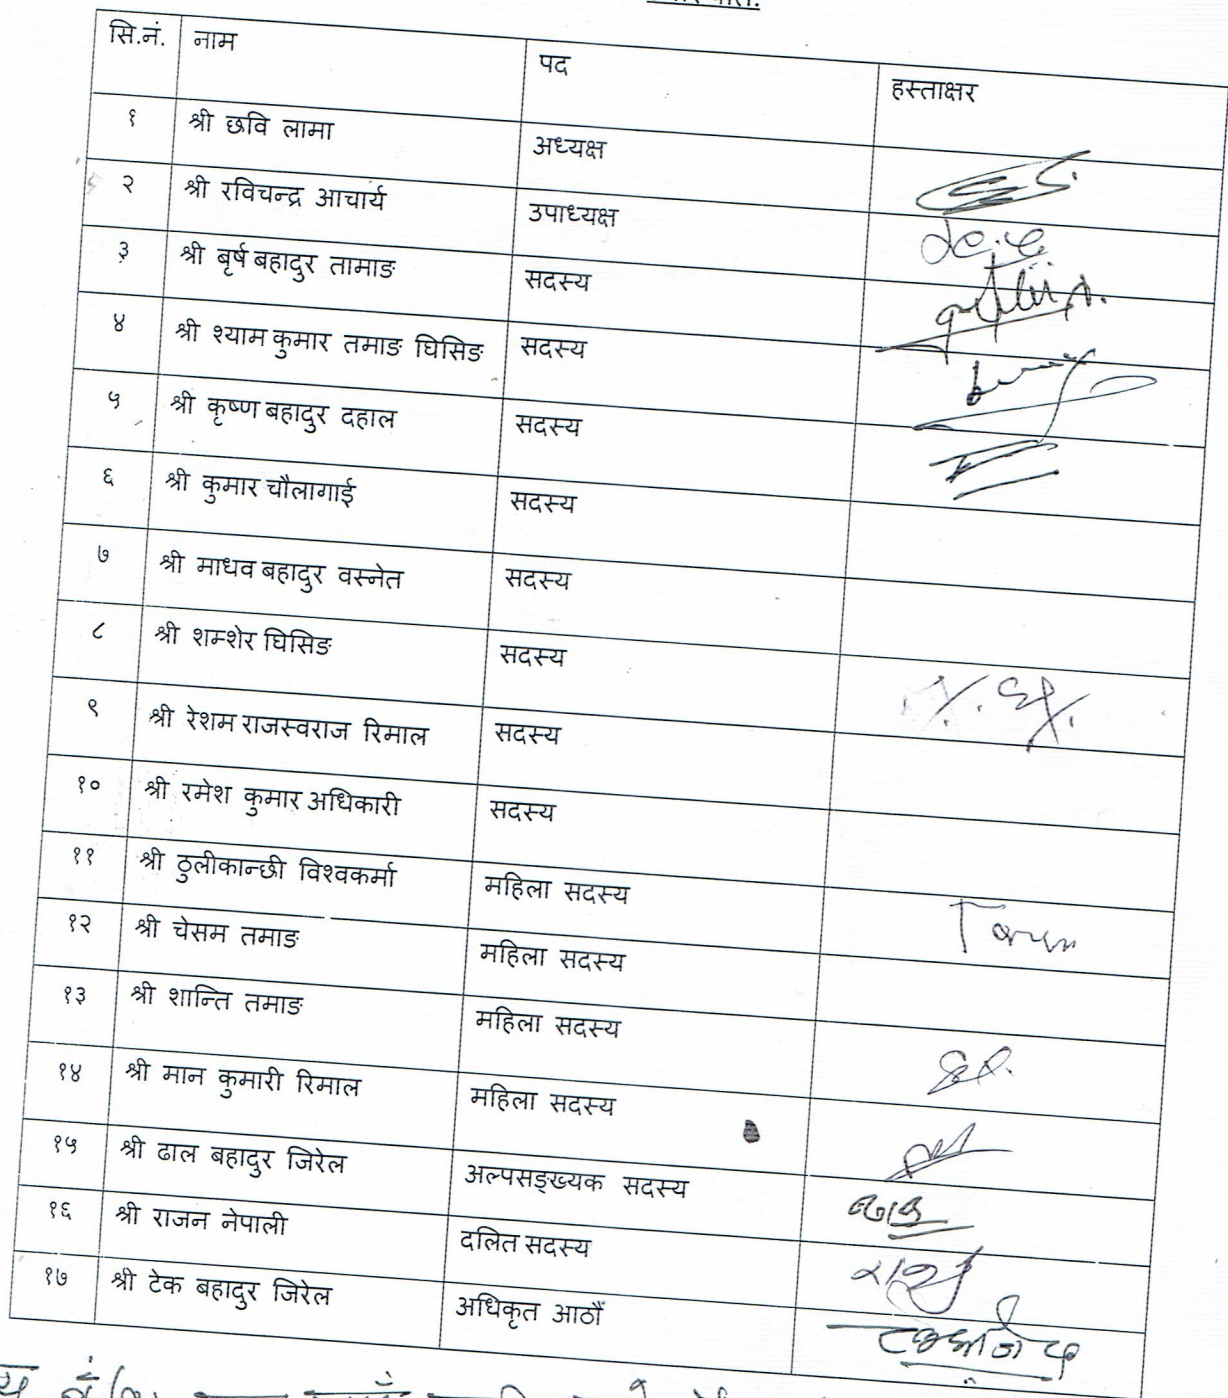 सि.नं. नाम पद हस्ताक्षर
१ श्री छवि लामा अध्यक्ष
२ श्री रविचन्द्र आचार्य उपाध्यक्ष
३ श्री बृर्ष बहादुर तामाङ सदस्य
४ श्री श्याम कुमार तमाङ घिसिङ सदस्य
५ श्री कृष्ण बहादुर दहाल सदस्य
६ श्री कुमार चौलागाई सदस्य
७ श्री माधव बहादुर वस्नेत सदस्य
८ श्री शम्शेर घिसिङ सदस्य
९ श्री रेशम राजस्वराज रिमाल सदस्य
१० श्री रमेश कुमार अधिकारी सदस्य
११ श्री ठुलीकान्छी विश्वकर्मा महिला सदस्य
१२ श्री चेसम तमाङ महिला सदस्य
१३ श्री शान्ति तमाङ महिला सदस्य
१४ श्री मान कुमारी रिमाल महिला सदस्य
१५ श्री ढाल बहादुर जिरेल अल्पसङ्ख्यक सदस्य
१६ श्री राजन नेपाली दलित सदस्य
१७ श्री टेक बहादुर जिरेल अधिकृत आठौं